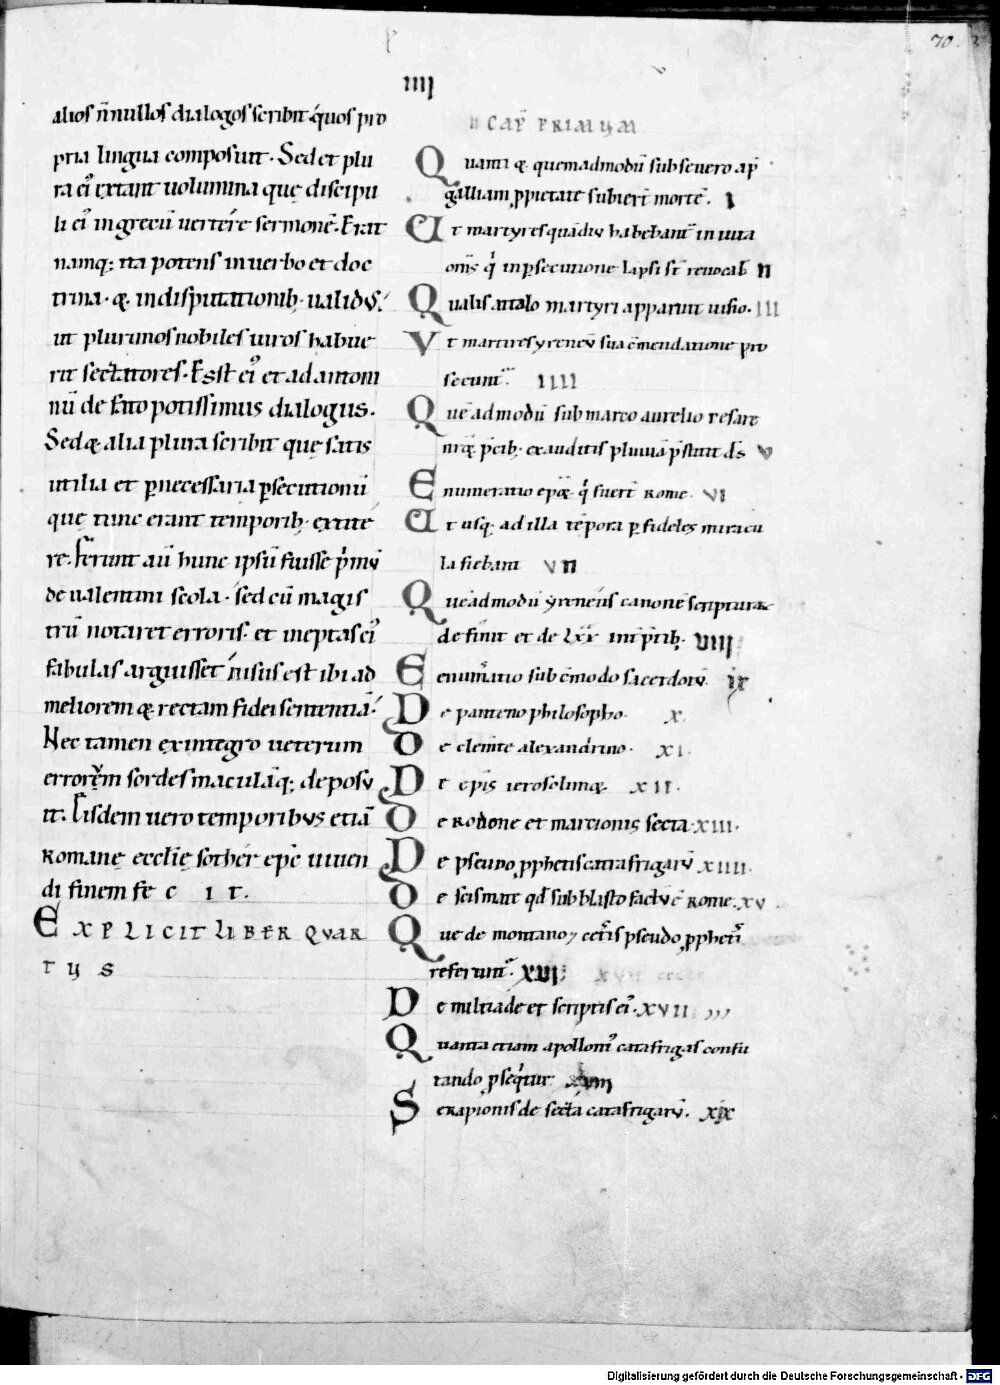 70.
IIII
alios n̄nullos dialogos scribit q́uos pro
pria lingua composuit. Sed et plu
ra ei᾽ extant uolumina quę discipu
li ei᾽ in grecū uertere sermonē. Erat
namq; ita potens in uerbo et doc
trina. & in disputationib; ualidus,
ut plurimos nobiles uiros habue
rit sectatores. Est ei᾽ et ad antoni
nū de fato potissimus dialogus.
Sed & alia plura scribit quę satis
utilia et ꝑnecessaria ꝑsecutionū
quę tunc erant temporib; extite
re. Ferunt aū hunc ipsū fuisse p̍mū
de ualentini scola. sed cū magis
trū notaret erroris. et ineptas ei᾽
fabulas arguisset nisus est ibi ad
meliorem & rectam fidei sententiā.
Nec tamen ex integro ueterum
errorem sordes maculāq; deposu
it. Eisdem uero temporibus etiā
romanę ecclię sother epc̄ uiuen
di finem fe c i t.
EXPLICIT LIBER QVAR
TUS
CAP̄ PRIMUM
Quanti & quemadmodū sub seuero ap̄
galliam ꝓ pietate subierī mortē. I
Ut martyres quādiu habebant̄ in uita
om̄s q̍ in ꝑsecutione lapsi st̄ reuocab̄ II
Qualis attalo martyri apparuit uisio. III
Vt martires yreneū sua c̄mendatione pro
secunt᾽. IIII
Queādmodū sub marco aurelio resare
nr̄& p̄cib; exauditis pluuiā p̄stitit d̄s V
Enumeratio ep̄& q̍ fuer̄ rome. VI
Ut usq; ad illa tēpora ꝑ fideles miracu
la fiebant VII
Queādmodū yreneus canonē scripturæ
definit et de LXX int̄p̄tib; VIIII
Enum̄atio sub c̄modo sacerdotū. IX
De panteno philosopho. X
De clem̄te alexandrino. XI.
De ep̄is ierosolimæ. XII.
De rodone et marcionis secta. XIII.
De pseudo ꝓphetis catafrigarū XIIII.
De scismate qđ sub blasto factū ē rome. XV
Que de montano 7 cet̄is pseudo ꝓphetis
referunt᾽. XVI
De miltiade et scriptis ei᾽. XVII
Quanta etiam apolloni᾽ catafrigas confu
tando ꝓseq̍tur XVIII
Serapionis de secta catafrigarū. XIX
Digitalisierung gefördert durch die Deutsche Forschungsgemeinschaft - DFG